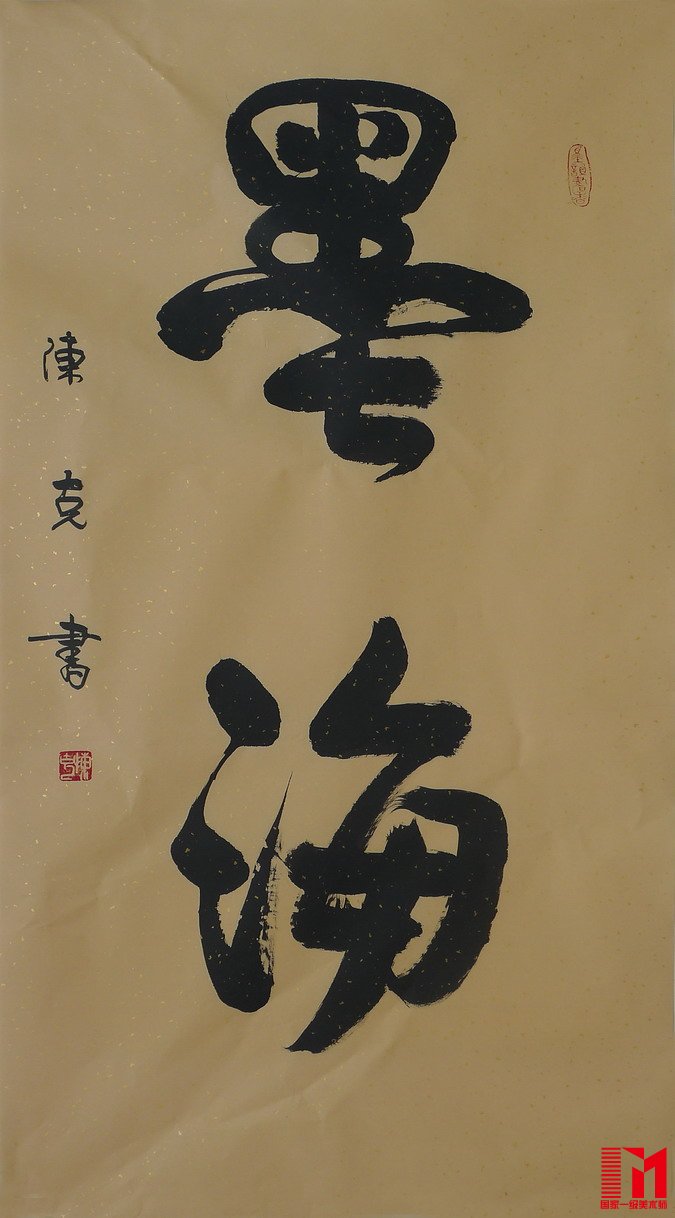 墨海
陳克書
国家一级美术师